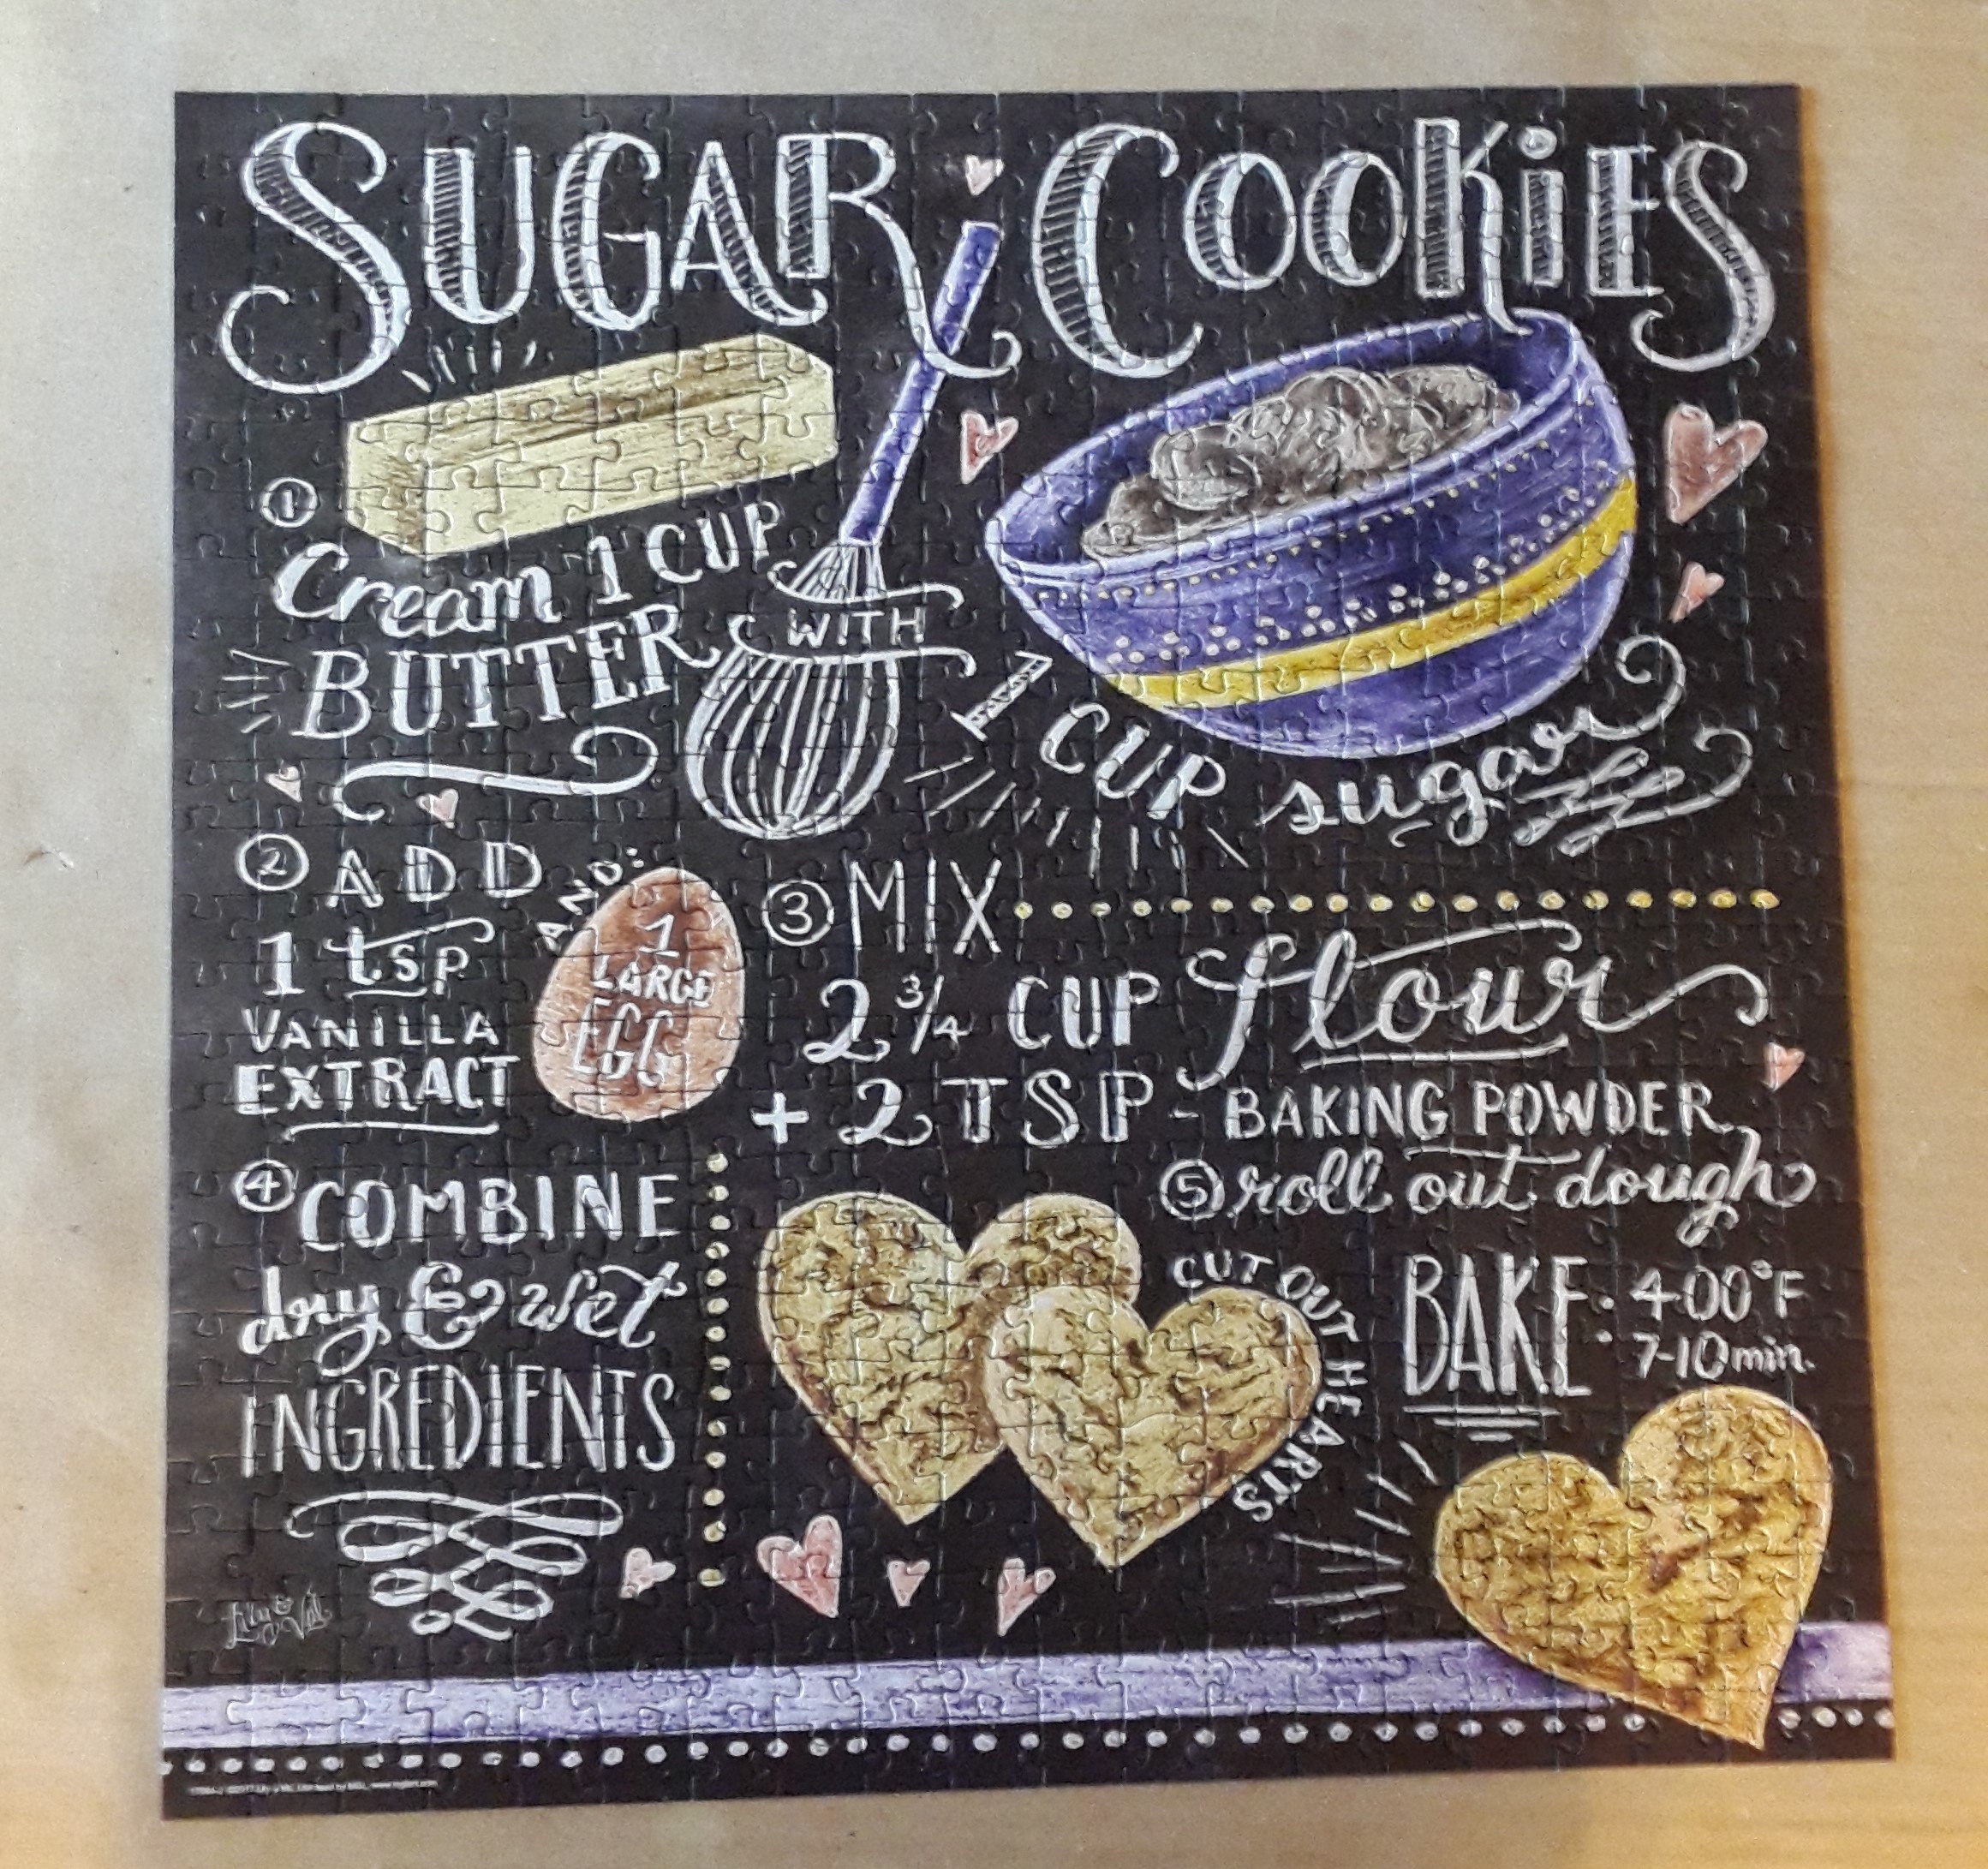 SUGAR COOKiES
① Cream 1 CUP
BUTTER
WITH
1 CUP sugar
② ADD
1 tsp
VANILLA
EXTRACT
AND:
1
LARGE
EGG
③ MIX
2 3/4 CUP flour
+ 2 TSP - BAKING POWDER
④ COMBINE
dry & wet
INGREDIENTS
⑤ roll out dough
CUT OUT HEARTS
BAKE: 400°F
7-10 min.
Lily & Val